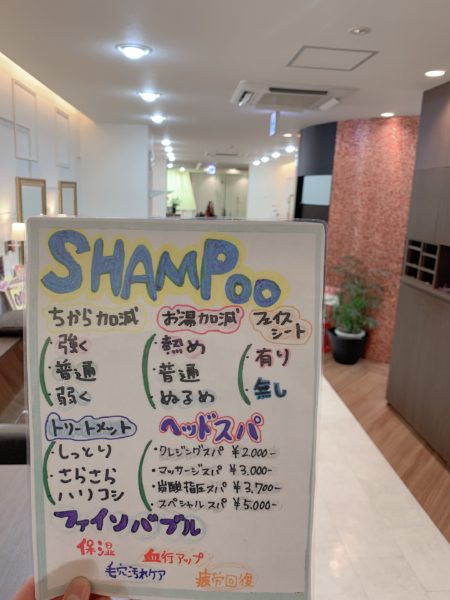 SHAMPOO
ちから加減
強く
普通
弱く
お湯加減
熱め
普通
ぬるめ
フェイス
シート
有り
無し
トリートメント
しっとり
さらさら
ハリコシ
ヘッドスパ
・クレジングスパ ¥2,000-
・マッサージスパ ¥3,000-
・炭酸指圧スパ ¥3,700-
・スペシャルスパ ¥5,000-
ファインバブル
保湿
血行アップ
毛穴汚れケア
疲労回復